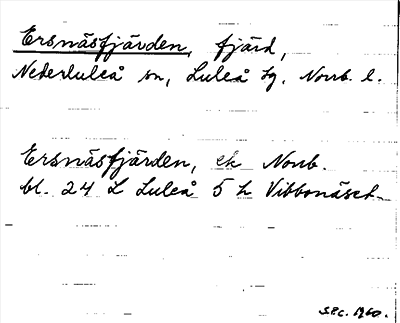 Ersnäsfjärden, fjärd,
Nederluleå sn, Luleå tg, Norrb. l.
Ersnäsfjärden, ek Norrb.
bl. 24 L Luleå 5 h Vibbonäset
S.P.C. 1960.